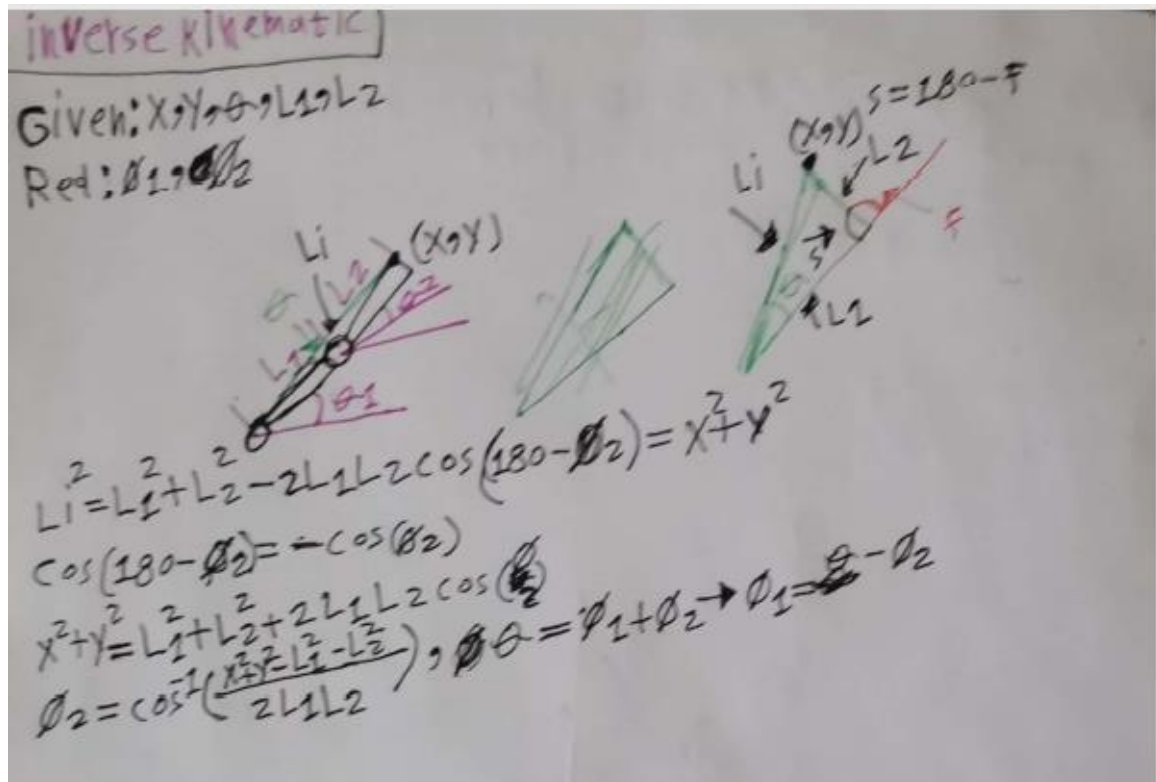 inverse kinematic
Given: X,Y,θ,L1,L2
Req: Ø1,Ø2
Li
(X,Y)
L2
θ2
θ
L1
θ1
s=180-F
(X,Y)
L2
Li
F
s
θ
L1
Li²=L1²+L2²-2L1L2cos(180-Ø2)=x²+y²
cos(180-Ø2)=-cos(Ø2)
x²+y²=L1²+L2²+2L1L2cos(Ø2)
Ø2=cos⁻¹((x²+y²-L1²-L2²)/2L1L2), θ=Ø1+Ø2→Ø1=θ-Ø2